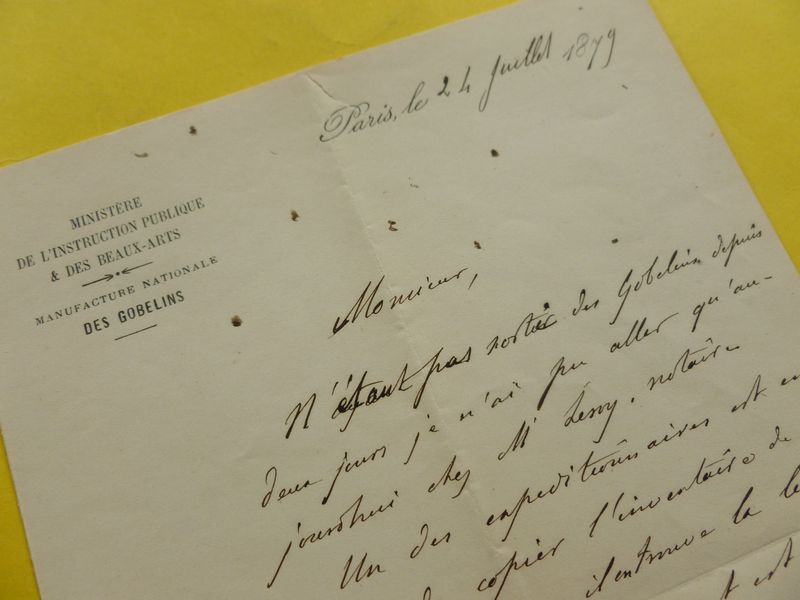 Paris, le 24 juillet 1879
MINISTÈRE
DE L'INSTRUCTION PUBLIQUE
& DES BEAUX-ARTS
MANUFACTURE NATIONALE
DES GOBELINS
Monsieur,
N'étant pas sortie des Gobelins depuis
deux jours je n'ai pu aller qu'au-
jourdhui chez Mr Leroy, notaire
Un des expeditionnaires est en
copier l'inventaire de
il en trouve la
est